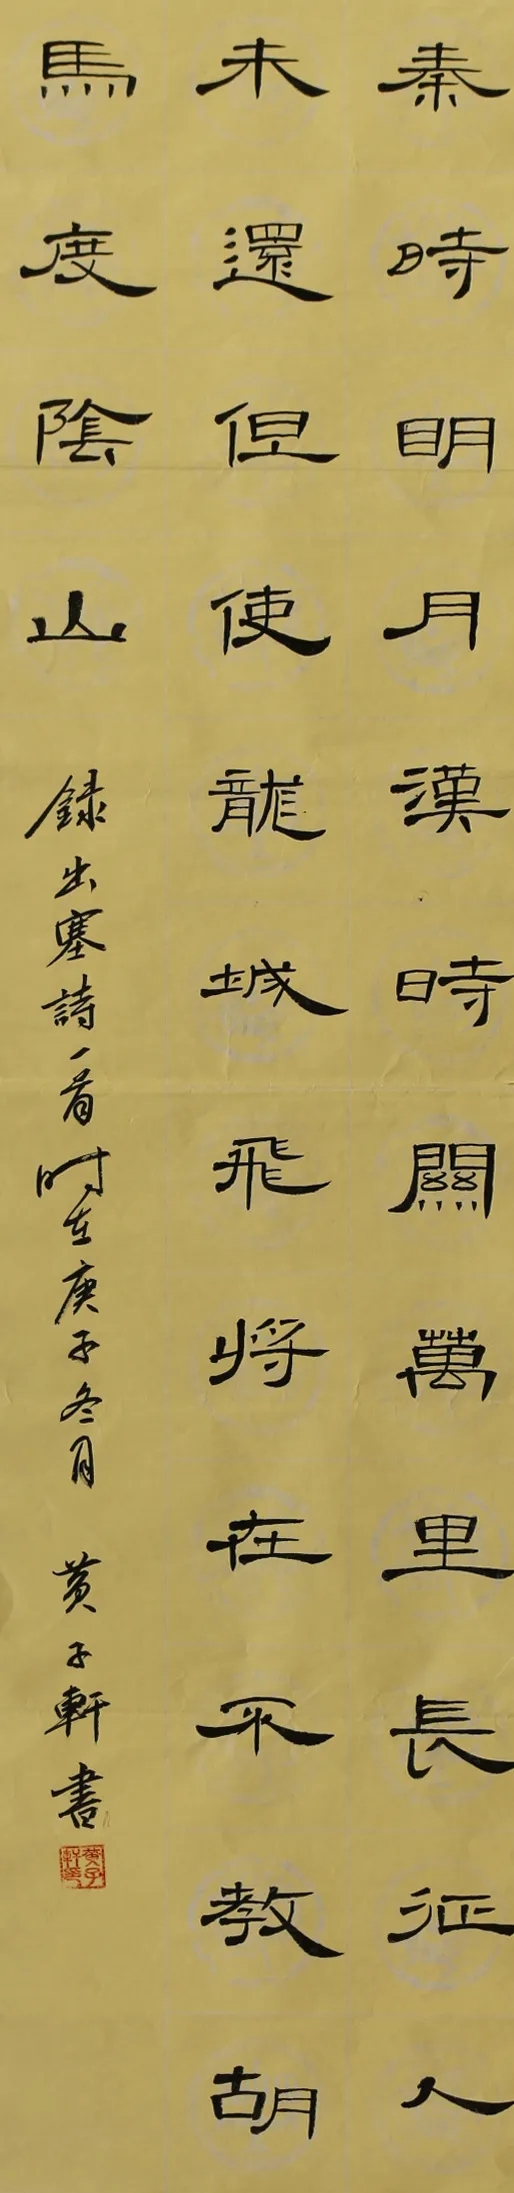 秦時眀月漢時關萬里長征人
未還但使龍城飛将在不教胡
馬度陰山
録出塞詩一首时在庚子冬月 黄子軒書
黄子軒印